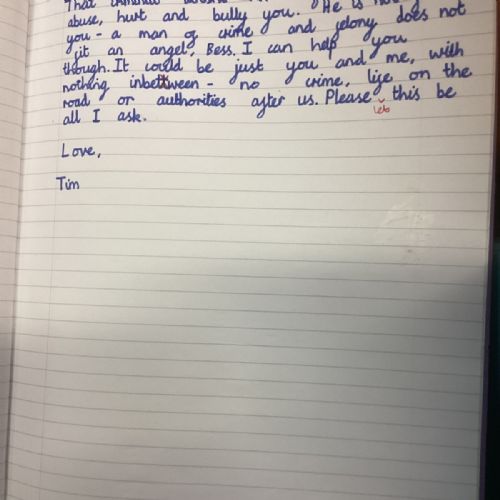 That criminal
abuse, hurt and bully you. He is
you - a man of crime and felony does not
fit an angel, Bess. I can help you
though. It could be just you and me, with
nothing inbettween - no crime, life on the
road or authorities after us. Please let this be
all I ask.
Love,
Tim